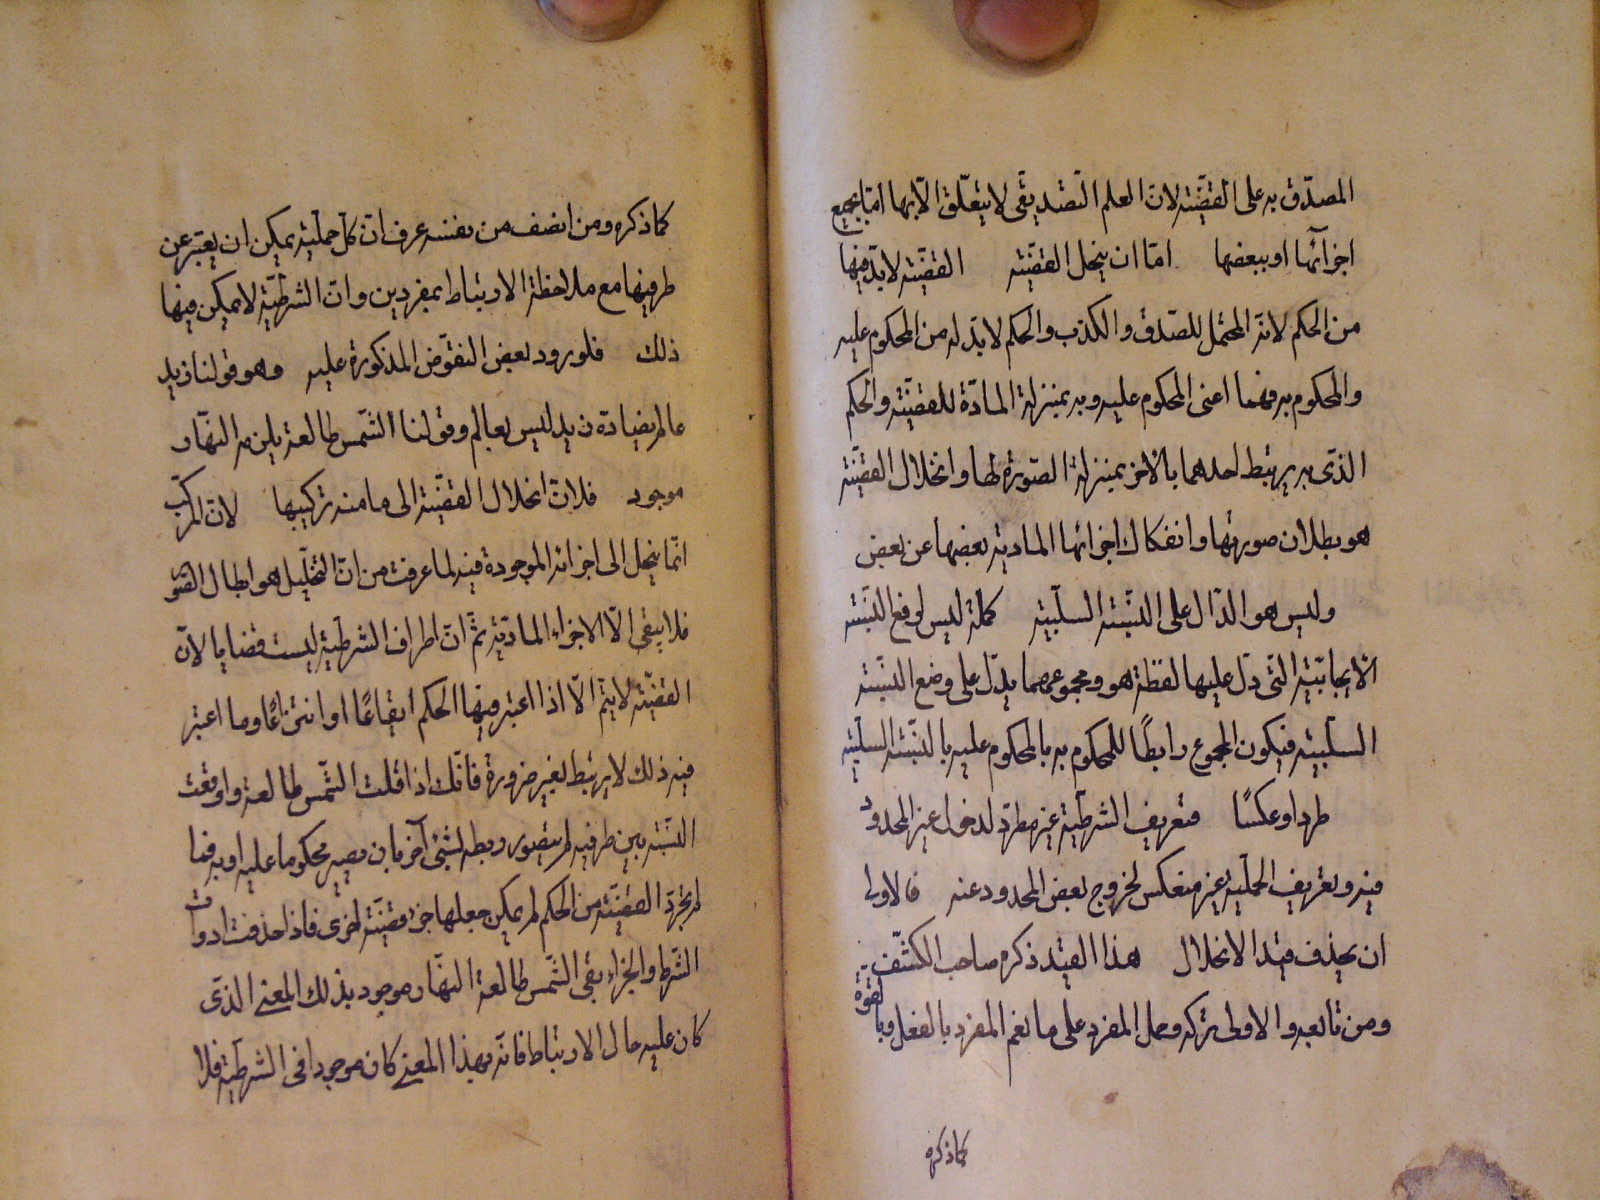 المصدّق به على القضيّة لان العلم التّصديقى لا يتعلّق الّا بها امّا بجميع
اجزآئها او ببعضها امّا ان ينحل القضيّة القضيّة لا بدّ فيها
من الحكم لانه المحتمل للصّدق والكذب والحكم لا بدّ له من المحكوم عليه
والمحكوم به فهما اعنى المحكوم عليه وبه بمنزلة المادّة للقضيّة والحكم
الذى به يرتبط احدهما بالاخر بمنزلة الصّورة لها وانحلال القضيّة
هو بطلان صورتها وانفكاك اجزائها المادية بعضها عن بعض
وليس هو الدّال على النّسبة السلبيّة كلمة ليس لرفع النّسبة
الايجابيّة التّى دلّ عليها لفظة هو ومجموعهما يدلّ على وضع النّسبة
السلبيّة فيكون المجموع رابطًا للمحكوم به بالمحكوم عليه بالنّسبة السلبيّة
طردا وعكسًا فتعريف الشرطيّة غير مطّرد لدخول غير المحدود
فيه وتعريف الحمليّة غير منعكس لخروج بعض المحدود عنه فالاولى
ان يحذف قيد الانحلال هذا القيد ذكره صاحب الكشّف
ومن تابعه والاولى تركه وحمل المفرد على ما يعم المفرد بالفعل وبالقوّة
كما ذكره
كما ذكره ومن انصف من نفسه عرف انّ كلّ حمليّة يمكن ان يعبّر عن
طرفيها مع ملاحظة الارتباط بمفردين وانّ الشرطيّة لا يمكن فيها
ذلك فلورود بعض النقوض المذكورة عليه وهو قولنا زيد
عالم يضادّه زيد ليس بعالم وقولنا الشّمس طالعة يلزمه النّهار
موجود فلانّ انحلال القضيّة الى ما منه تركيبها لان المركّب
انّما ينحل الى اجزائه الموجودة فيه لما عرفت من انّ التحليل هو ابطال الصّورة
فلا يبقى الّا الاجزاء الماديّة ثمّ انّ اطراف الشرطيّة ليست قضايا لانّ
القضيّة لا يتم الّا اذا اعتبر فيها الحكم ايقاعًا او انتزاعًا وما اعتبر
فيه ذلك لا يرتبط بغيره ضرورة فانّك اذا قلت الشّمس طالعة واوقعت
النّسبة بين طرفيه لم يتصور ربطه لشئ آخر بان يصير محكوما عليه او به فما
لم يجرّد القضيّة من الحكم لم يمكن جعلها جزء قضيّة اخرى فاذا حذفت ادوات
الشّرط والجزاء بقى الشّمس طالعة النّهار موجود بذلك المعنى الذّى
كان عليه حال الارتباط فانّه بهذا المعنى كان موجودا فى الشرطيّة فلا